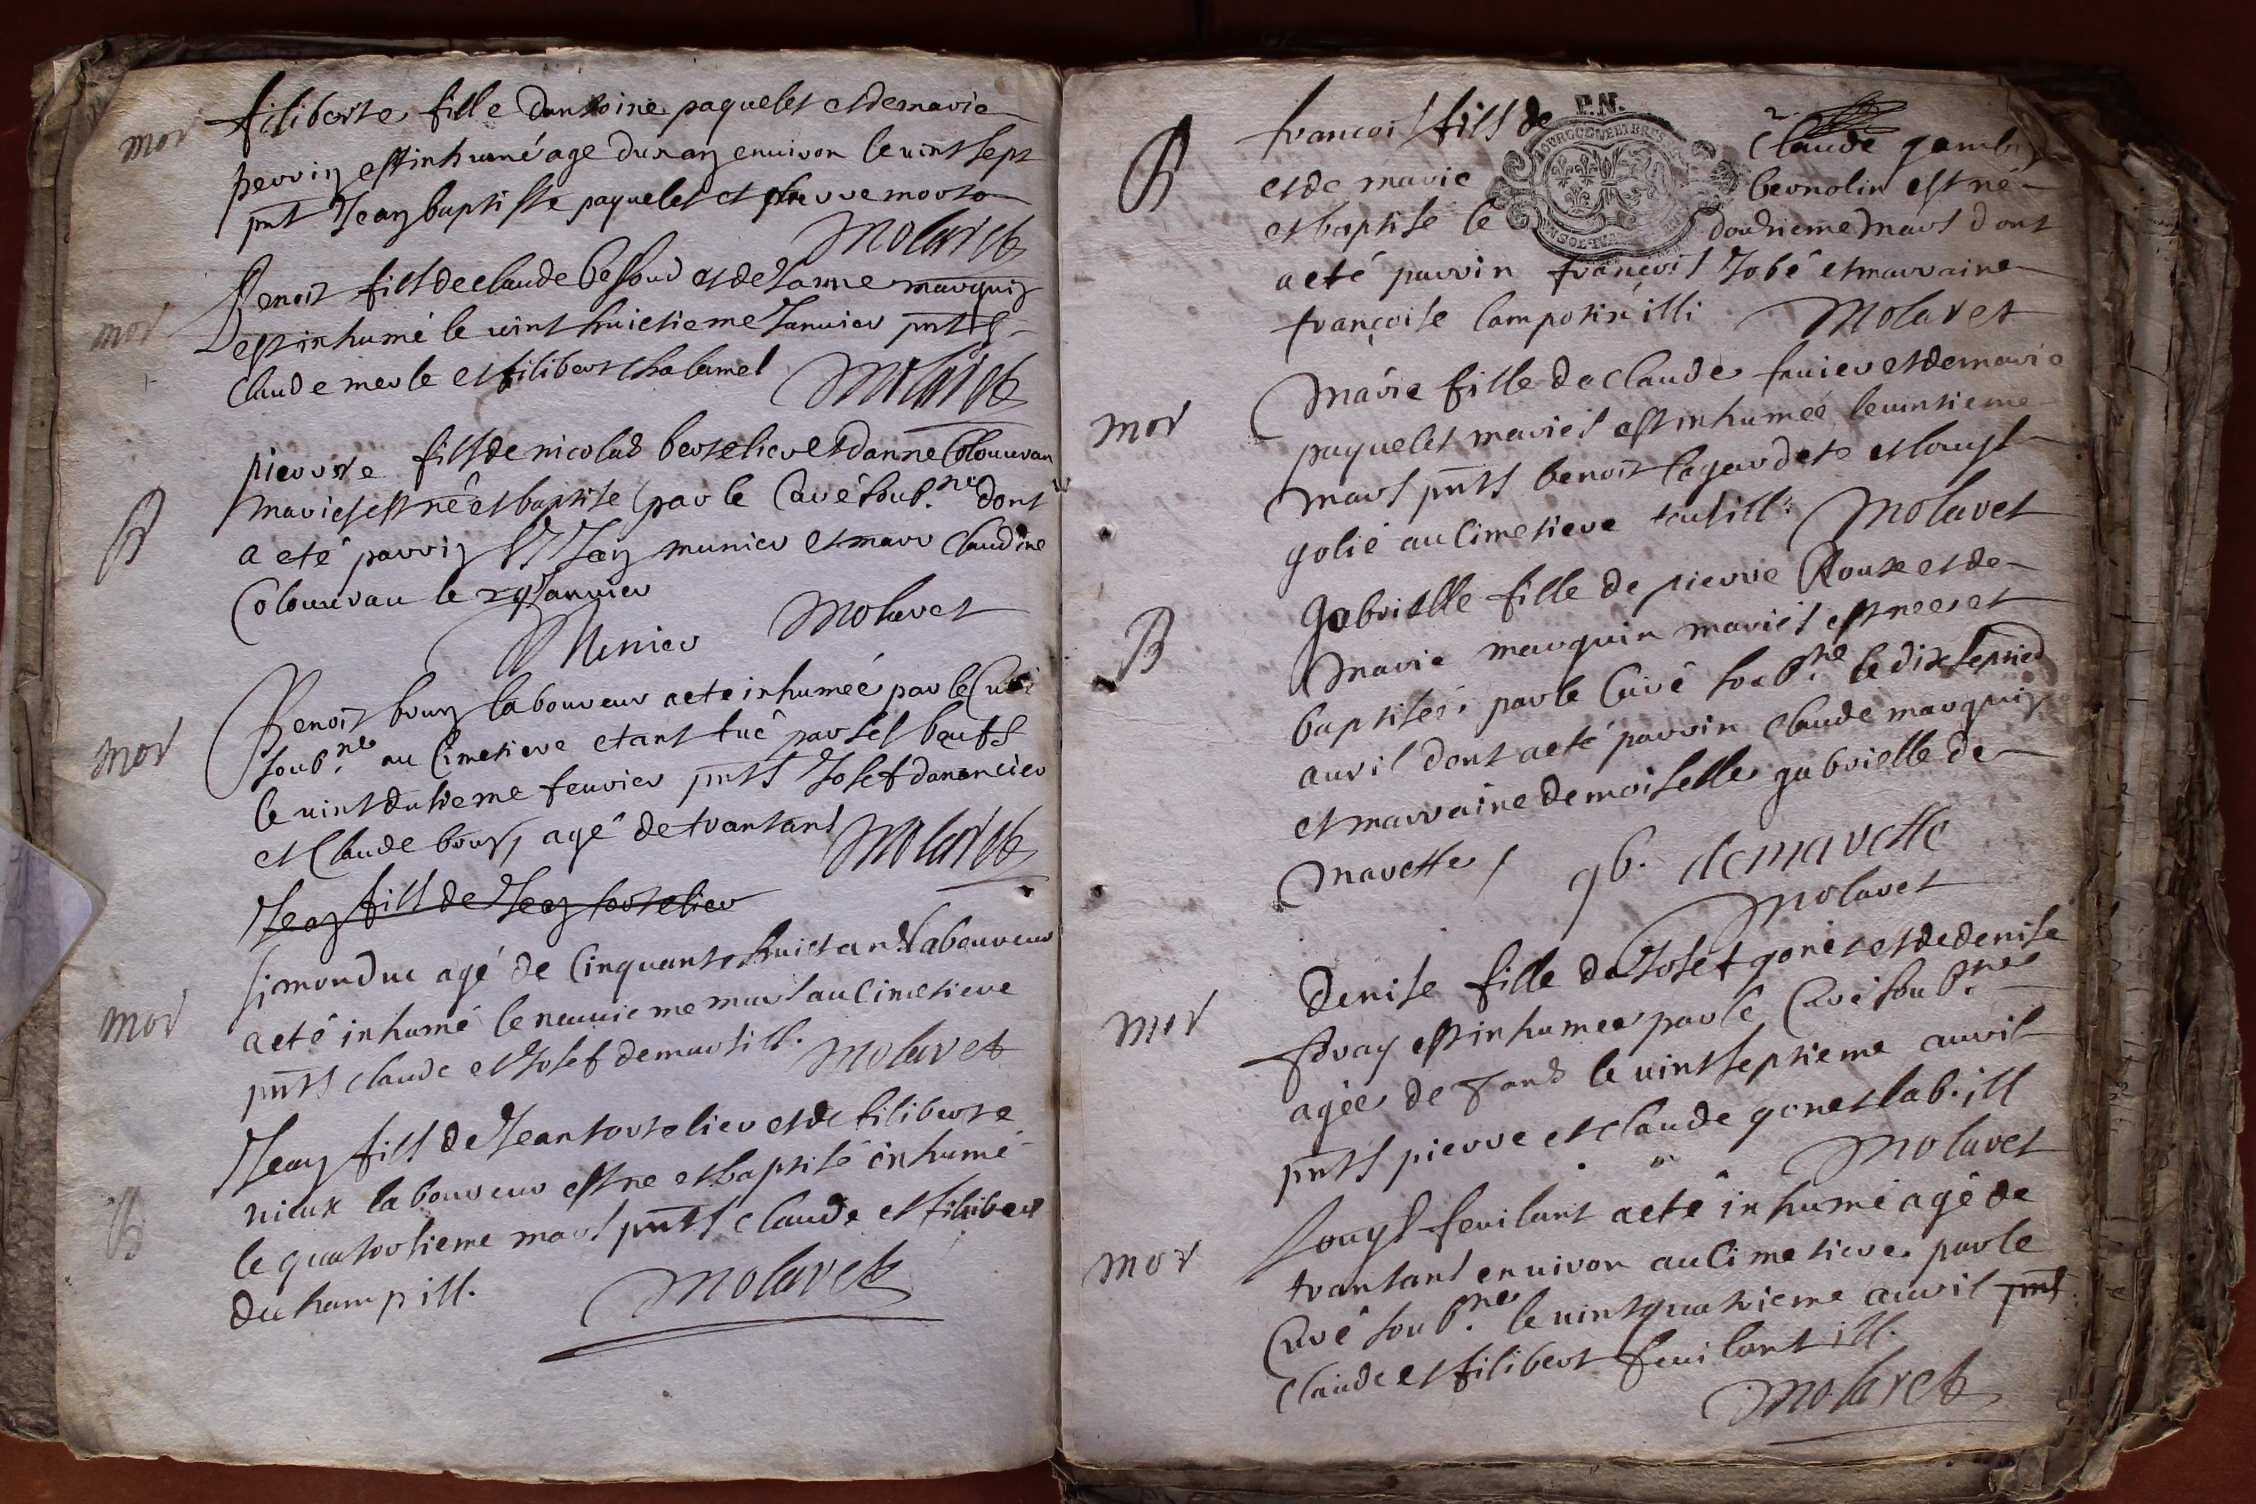 mor
filiberte fille dantoine paquelet et de marie
perrin est inhumé age dun an enuiron le uint sept
pnt Jean baptiste paquelet et pierre morto
Molaret
mor
Benoit fils de claude besson et de Janne marquin
est inhumé le uint huictieme Januier pnts
claude merle et filibert chalumel
Molaret
B
pierre fils de nicolas bertelier et danne Colouurau
mariés est né et baptise par le Curé soubne. dont
a eté parrin Jan munier et marr claudine
Colouurau le 29 Januier
Munier Molaret
mor
Benoit boury laboureur a ete inhumée par le Curé
soubne. au Cimetiere etant tué par ses bœufs
le uint dusieme feurier pnts Josef danancier
et Claude boury, agé de trantans
Molaret
Jean fils de Jean tortelier
mor
simon duc agé de Cinquante huict ans laboureur
a eté inhumé le neuuieme mars au Cimetiere
pnts claude et Josef demars ill.
Molaret
B
Jean fils de Jean tortelier et de filiberte
nieux laboureur est ne et baptisé inhumé
le quatorsieme mars pnts claude et filibert
duchamp ill.
Molaret
P.N.
2
B
francois fils de claude
et de marie bernolin est né
et baptisé le douzieme mars dont
a eté parrin françois Jobé et marraine
françoise
Molaret
mor
Marie fille de claude feurier et de marie
paquelet mariés est inhumée le uintieme
mars pnts benoit lagardete et louys
golié au Cimetiere tous ill.
Molaret
B
Gabrielle fille de pierre Roux et de
Marie marquin mariés est nee et
baptiseé par le Curé soubne. le dixseptied
auril dont a eté parrin claude marquin
et marraine demoiselle gabrielle de
Marette /
gb. demarette
Molaret
mor
Denise fille de Josef gonet et de denise
foray est inhumee par le Curé soubne.
agée de 7 ans le uint septieme auril
pnts pierre et claude gonet lab. ill
Molaret
mor
Louys feuilant a eté inhumé agé de
trantans enuiron au Cimetiere par le
Curé soubne. le uint quatrieme auril pnts
claude et filibert feuilant ill.
Molaret